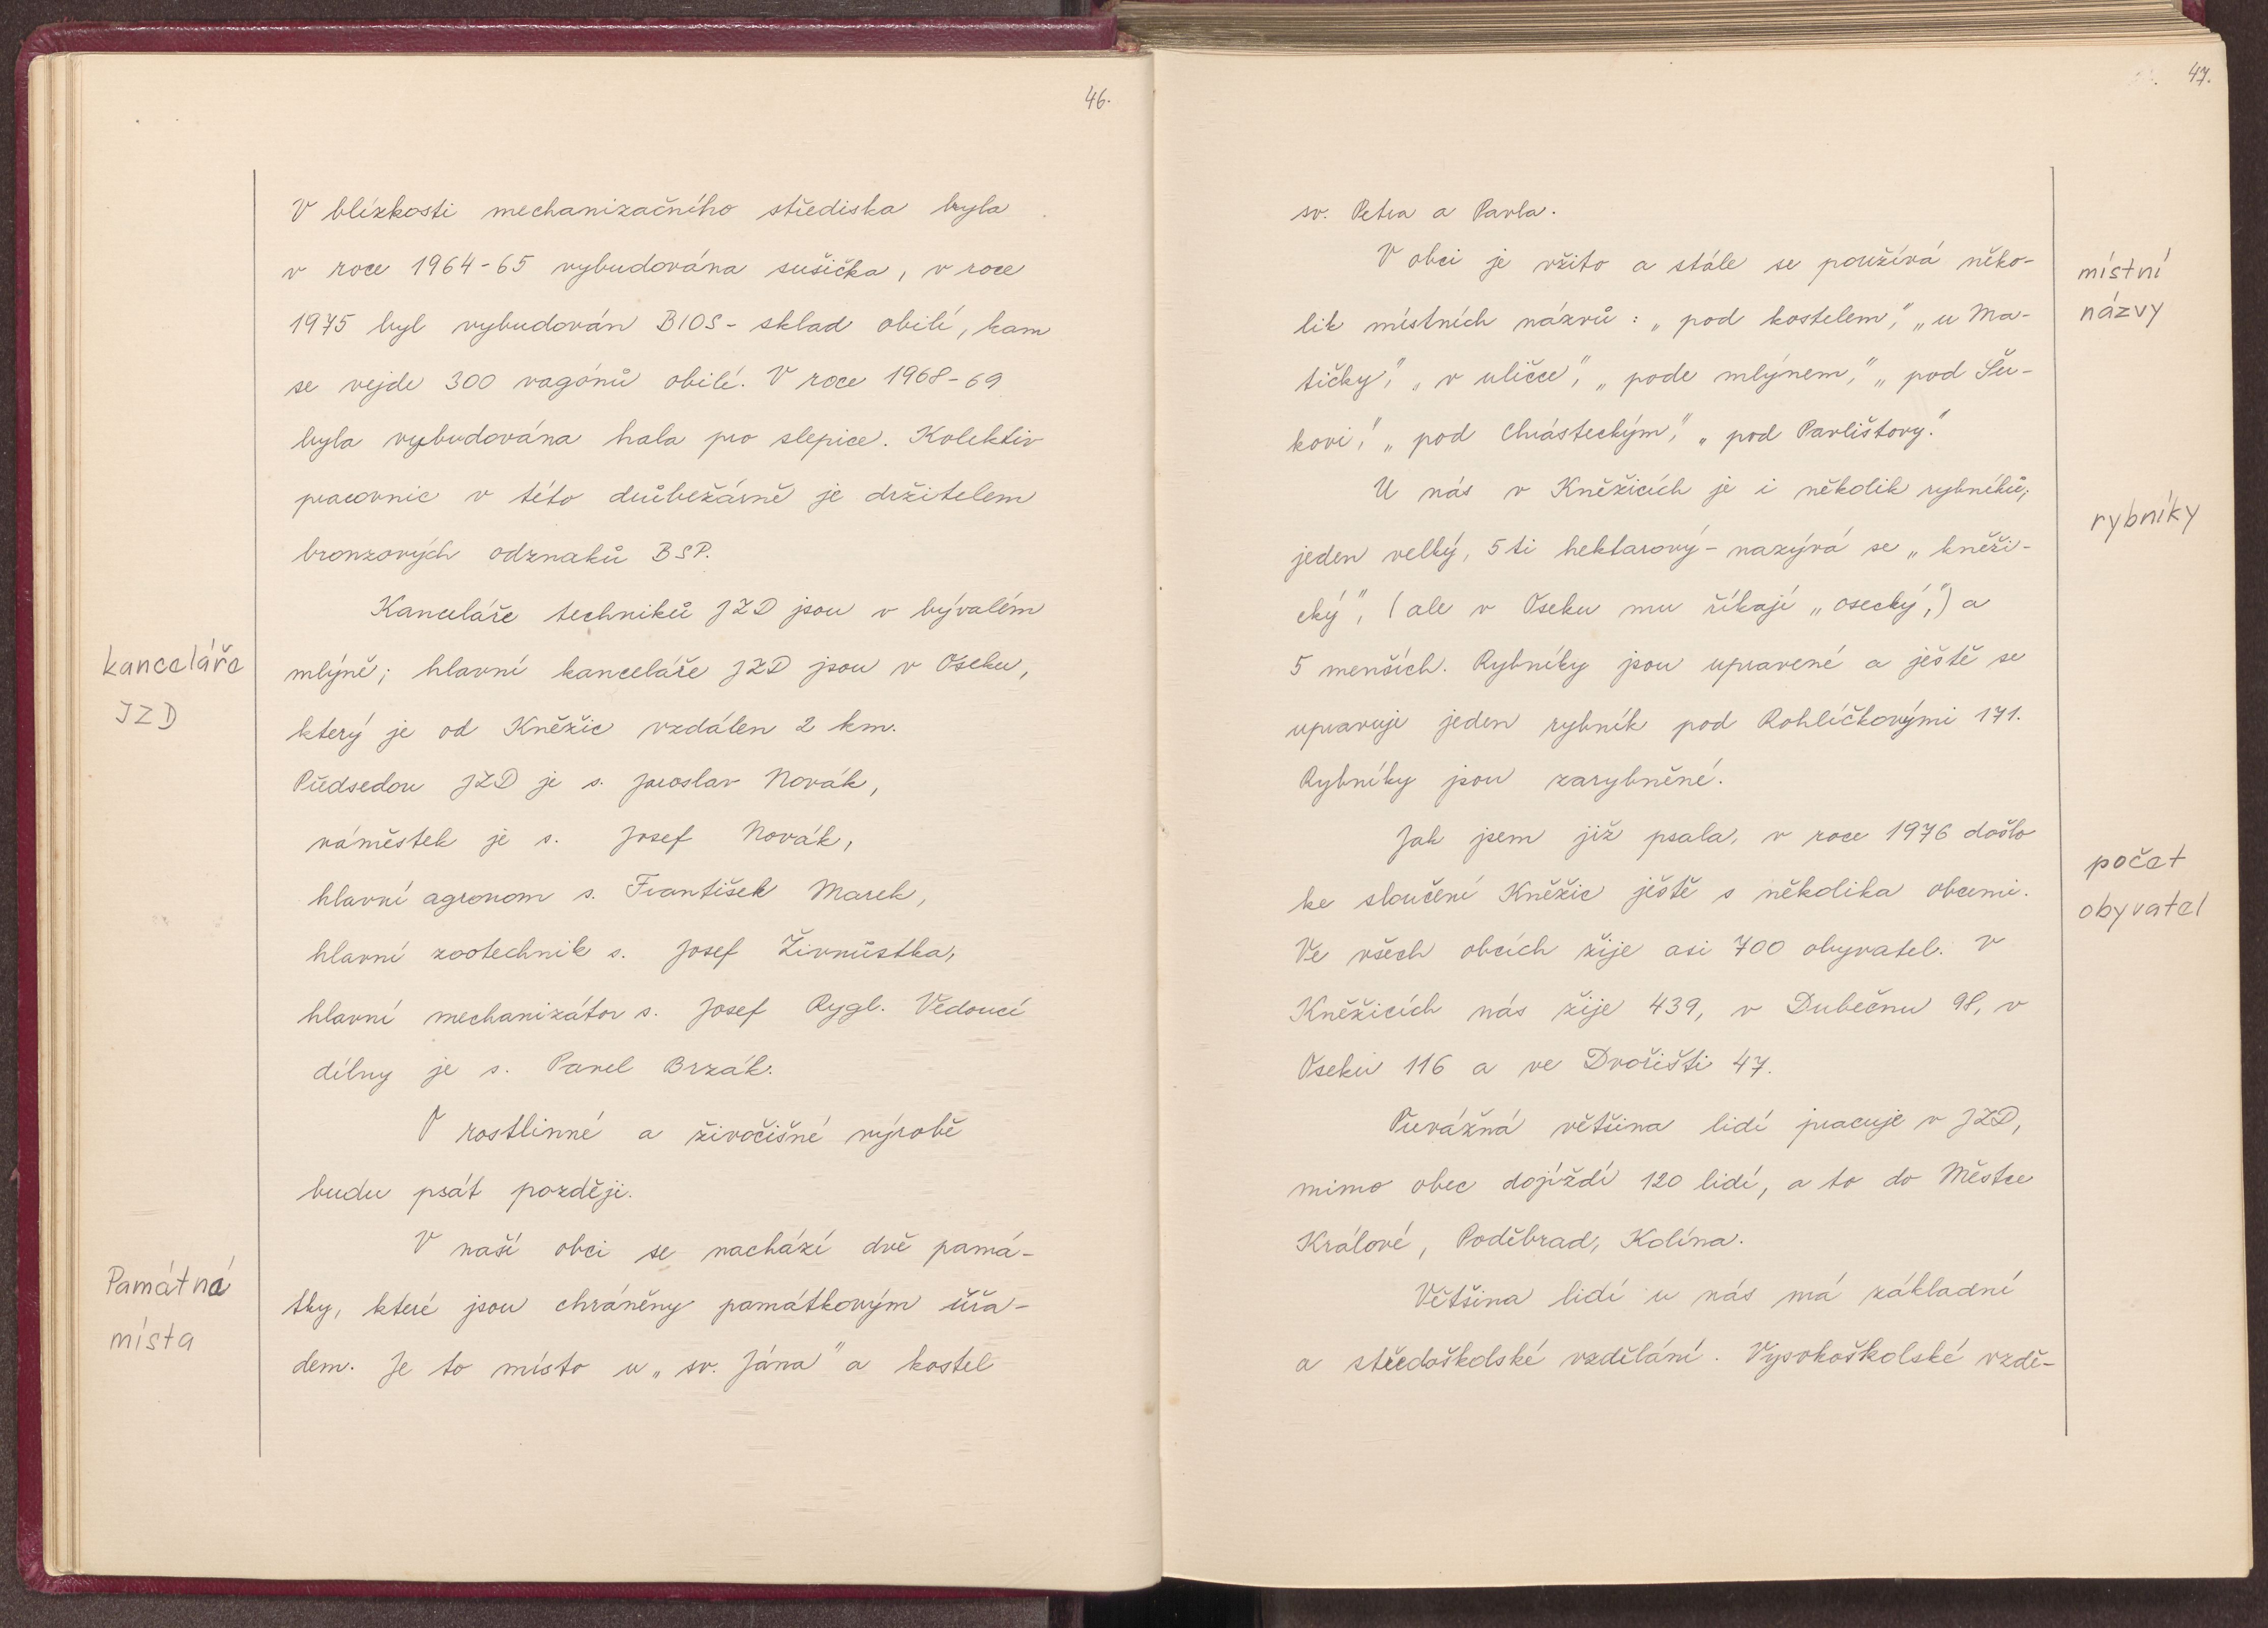 46.
V blízkosti mechanizačního střediska byla
v roce 1964-65 vybudována sušička, v roce
1975 byl vybudován BIOS - sklad obilí, kam
se vejde 300 vagónů obilí. V roce 1968-69
byla vybudována hala pro slepice. Kolektiv
pracovnic v této drůbežárně je držitelem
bronzových odznaků BSP.
Kanceláře techniků JZD jsou v bývalém
kanceláře
JZD
mlýně; hlavní kanceláře JZD jsou v Oseku,
který je od Kněžic vzdálen 2 km.
Předsedou JZD je s. Jaroslav Novák,
náměstek je s. Josef Novák,
hlavní agronom s. František Marek,
hlavní zootechnik s. Josef Živnůstka,
hlavní mechanizátor s. Josef Rygl. Vedoucí
dílny je s. Pavel Brzák.
O rostlinné a živočišné výrobě
budu psát později.
V naší obci se nachází dvě pamá-
Památná
místa
tky, které jsou chráněny památkovým úřa-
dem. Je to místo u „sv. Jána" a kostel
47.
sv. Petra a Pavla.
V obci je vžito a stále se používá něko-
místní
názvy
lik místních názvů: „pod kostelem," „u Ma-
tičky," „v uličce," „pode mlýnem," „pod Šu-
kovi," „pod Chrásteckým," „pod Pavlištovy."
U nás v Kněžicích je i několik rybníků;
rybníky
jeden velký, 5ti hektarový - nazývá se „kněži-
cký", (ale v Oseku mu říkají „osecký,") a
5 menších. Rybníky jsou upravené a ještě se
upravuje jeden rybník pod Rohlíčkovými 171.
Rybníky jsou zarybněné.
Jak jsem již psala, v roce 1976 došlo
počet
obyvatel
ke sloučení Kněžic ještě s několika obcemi.
Ve všech obcích žije asi 700 obyvatel. V
Kněžicích nás žije 439, v Dubečnu 98, v
Oseku 116 a ve Dvořišti 47.
Převážná většina lidí pracuje v JZD,
mimo obec dojíždí 120 lidí, a to do Městce
Králové, Poděbrad, Kolína.
Většina lidí u nás má základní
a středoškolské vzdělání. Vysokoškolské vzdě-